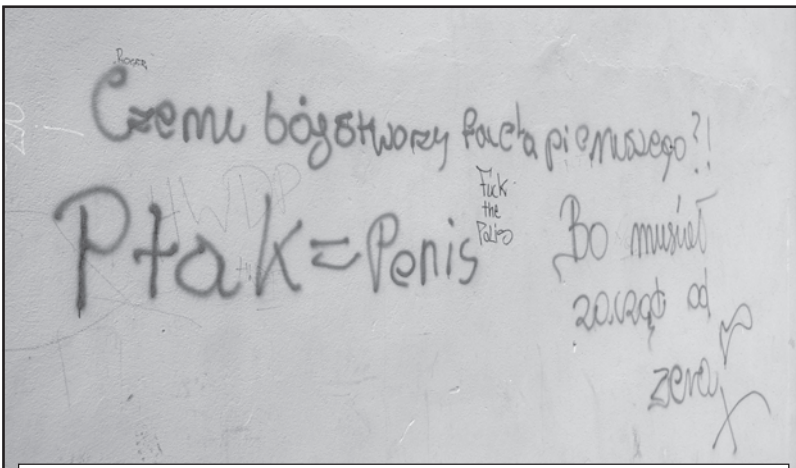 Czemu bóg stworzy faceta pierwszego?!
HWDP
Ptak = Penis
Fuck
the
Police
Bo musiał
zacząć od
zera